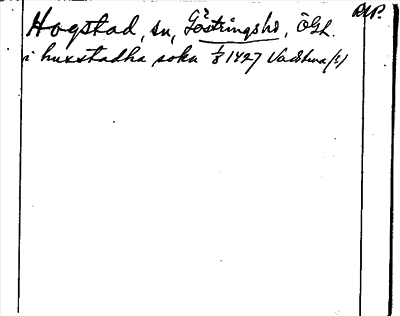 Hogstad, sn, Göstringshd, ÖGL. DMP.
i huxstadha sokn 1/8 1427 Vadstena (?)